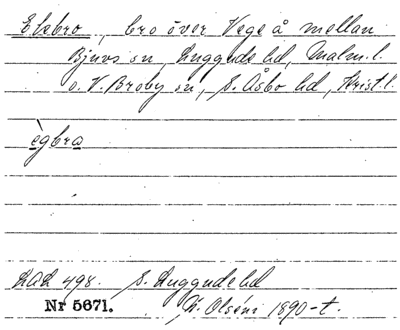 Elebro, bro över Vege å mellan
Bjuvs sn, Luggude hd, Malm. l.
o. V. Broby sn, S. Åsbo hd, Krist. l.
ègbra
LAL 498. S. Luggude hd
Nr 5671. N. Olséni 1890-t.